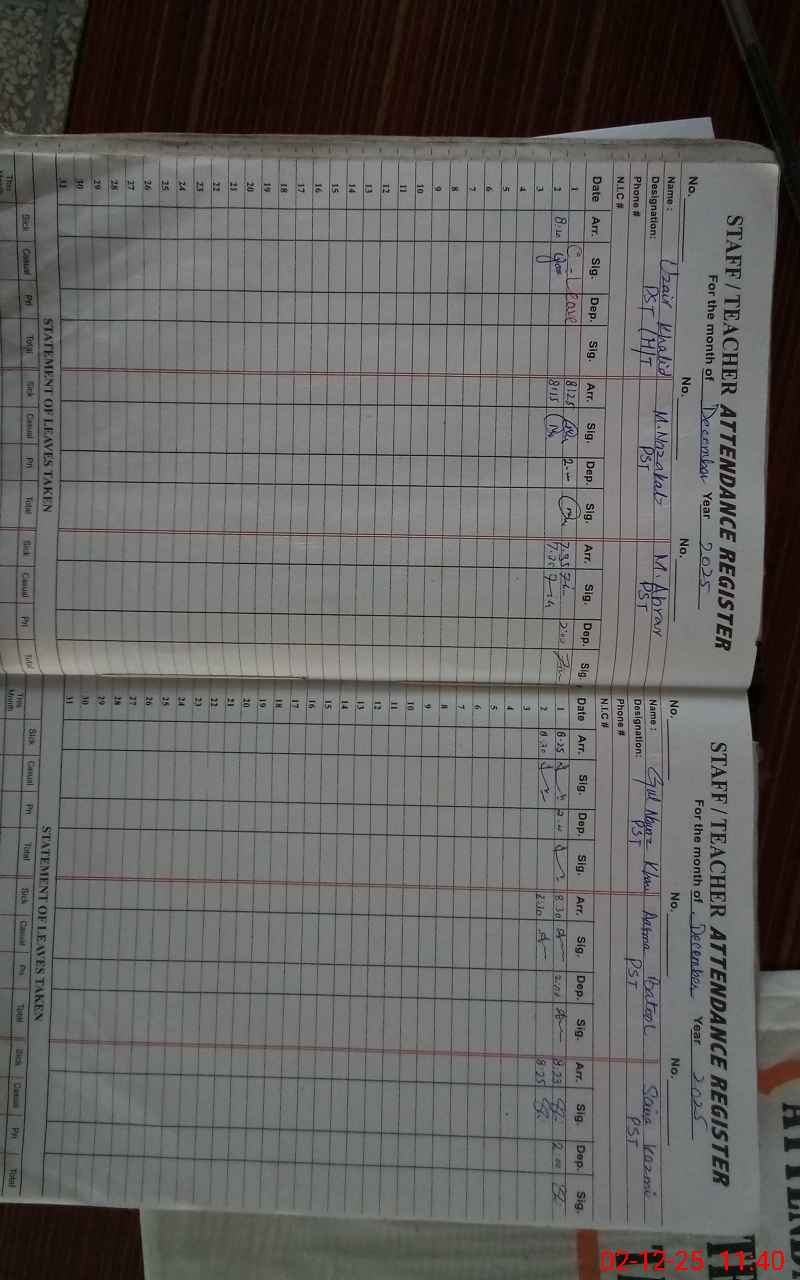 STAFF / TEACHER ATTENDANCE REGISTER
For the month of December Year 2025
No. No. No.
Name : Uzair Khalid M. Nazakat M. Abrar
Designation: PST (H)T PST PST
Phone #
N.I.C #
Date Arr. Sig. Dep. Sig. Arr. Sig. Dep. Sig. Arr. Sig. Dep. Sig.
1 C-Leave 8:25 2:00 7:35 2:00
2 8:20 8:15
3
4
5
6
7
8
9
10
11
12
13
14
15
16
17
18
19
20
21
22
23
24
25
26
27
28
29
30
31
STATEMENT OF LEAVES TAKEN
Sick Casual Pri Total Sick Casual Pri Total Sick Casual Pri Total
This Month
STAFF / TEACHER ATTENDANCE REGISTER
For the month of December Year 2025
No. No. No.
Name : Gul Nawaz Khan Aasma Batool Saira Kazmi
Designation: PST PST PST
Phone #
N.I.C #
Date Arr. Sig. Dep. Sig. Arr. Sig. Dep. Sig. Arr. Sig. Dep. Sig.
1 8:25 2:00 8:30 2:00 8:23 2:00
2 8:30 8:25
3
4
5
6
7
8
9
10
11
12
13
14
15
16
17
18
19
20
21
22
23
24
25
26
27
28
29
30
31
STATEMENT OF LEAVES TAKEN
Sick Casual Pri Total Sick Casual Pri Total Sick Casual Pri Total
This Month
02-12-25 11:40